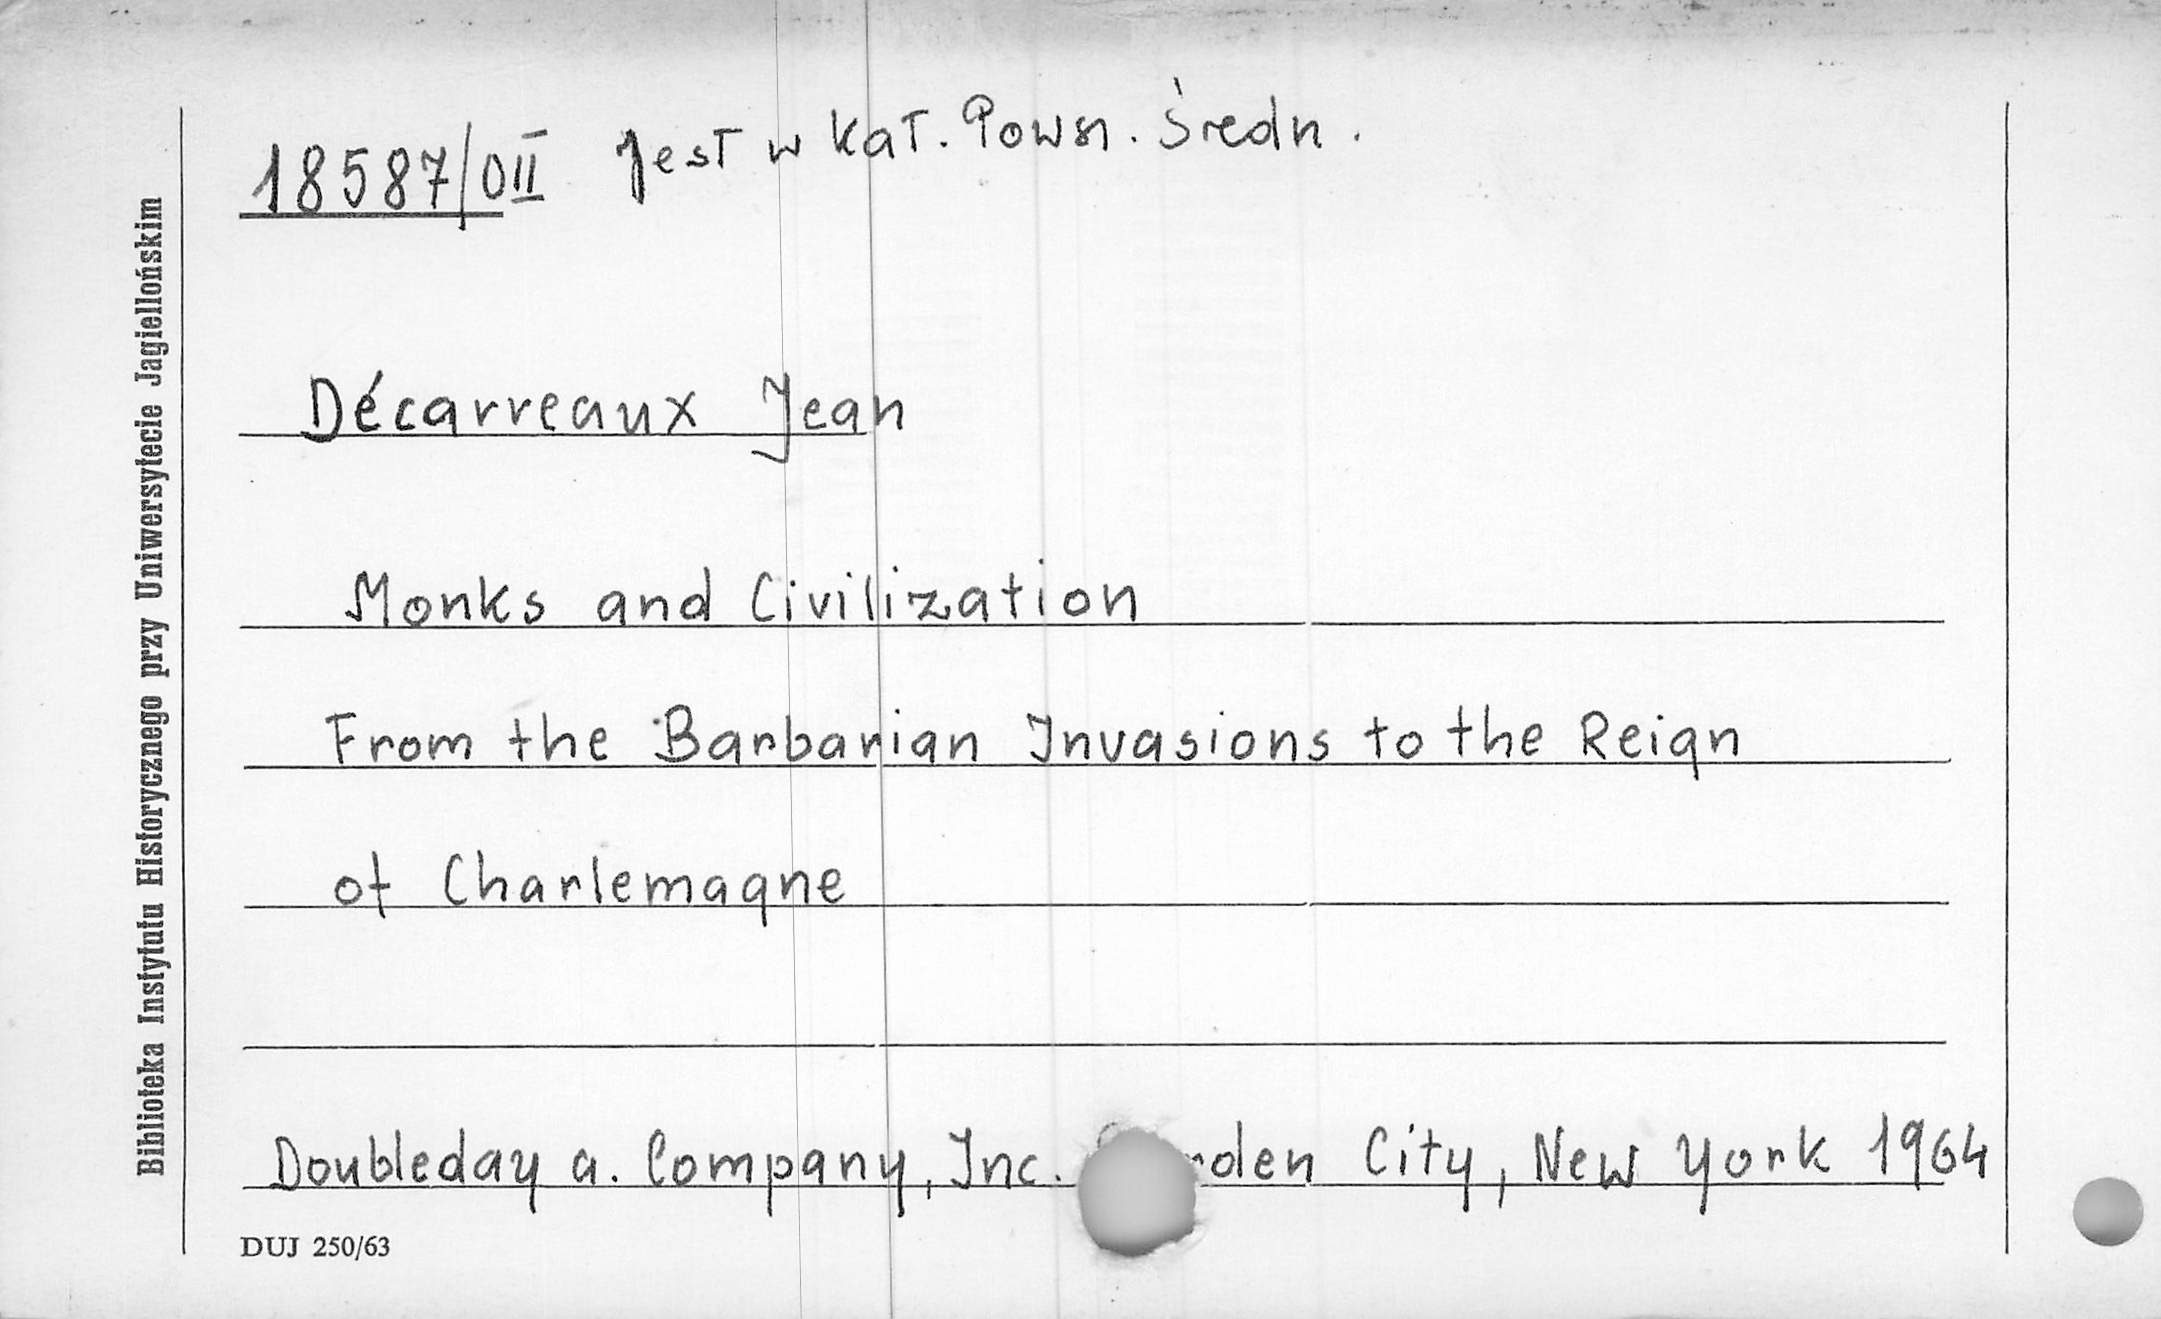 18587/OII Jest w kat. Powsz. Średn.
Décarreaux Jean
Monks and Civilization
From the Barbarian Invasions to the Reign
of Charlemagne
Doubleday a. Company, Inc. rden City, New York 1964
DUJ 250/63
Biblioteka Instytutu Historycznego przy Uniwersytecie Jagiellońskim